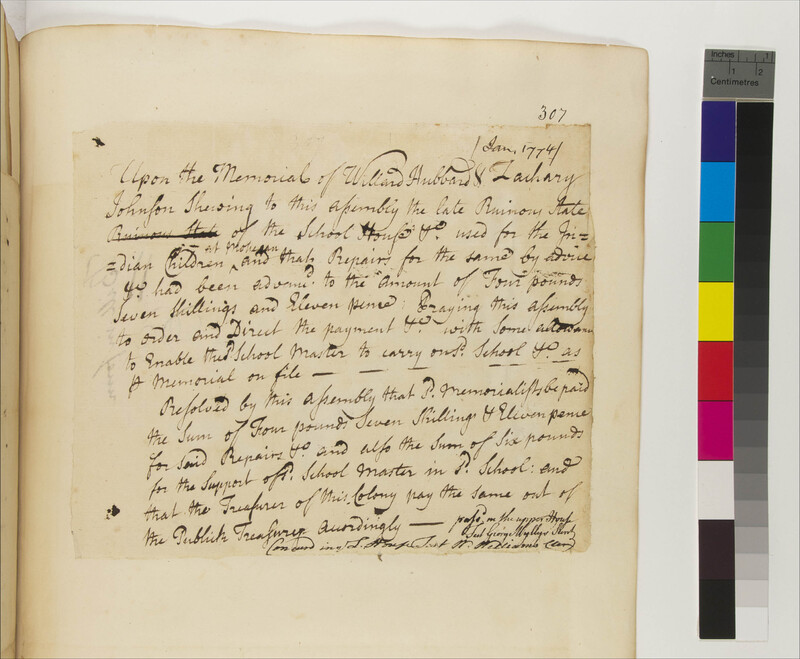 307
/Jan, 1774/
Upon the Memorial of Willard Hubbard & Zachary
Johnson Shewing to this assembly the late Ruinous State
Ruinous State of the School House &c. used for the In=
at Mohegan
=dian Children and that Repairs for the same by advice
&c. had been advanc'd to the amount of Four pounds
Seven Shillings and Eleven pence: Praying this assembly
to order and Direct the payment &c. with some allowance
to Enable the sd. School Master to carry on sd. School &c. as
⅌ Memorial on file — — — — —
Resolved by this assembly that sd. Memorialists be paid
the Sum of Four pounds Seven Shillings & Eleven pence
for said Repairs &c. and also the Sum of Six pounds
for the Support of sd. School Master in sd. School: and
that the Treasurer of this Colony pay the same out of
the Publick Treasury accordingly —
pass'd in the upper House
Test George Wyllys Secret
Concurd in ye L. House Test Wm. Williams Clerk
Inches 1
1 2
Centimetres